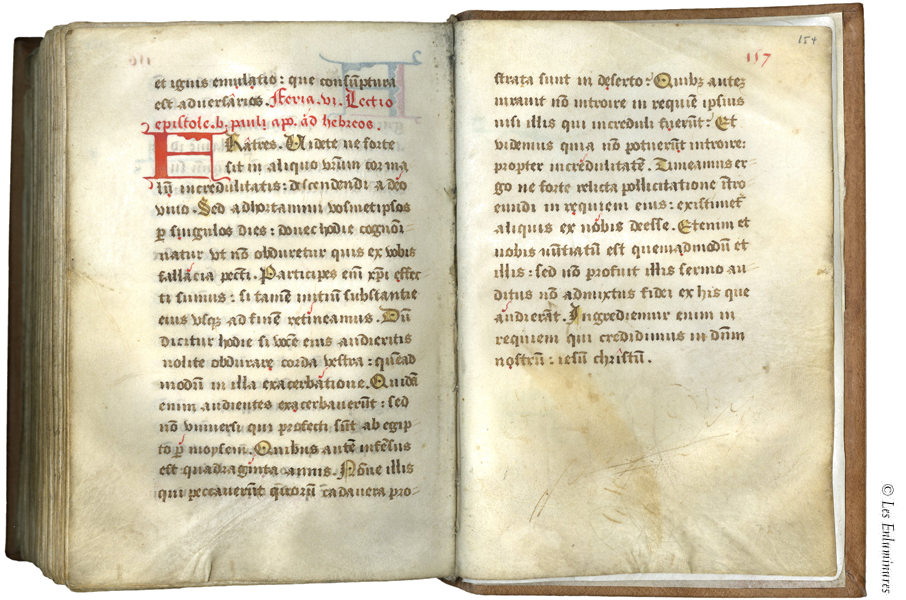 et ignis emulatio: que consūptura
est adversarios. Feria. vi. Lectio
epistole. b. pauli apo. ad hebreos.
FRatres. Videte ne forte
sit in aliquo vr̄um cor ma
lū incredulitatis: descendendi a deo
vivo. Sed adhortamini vosmetipsos
p singulos dies: donec hodie cognoī
natur vt nō obduretur quis ex vobis
fallacia pctī. Participes eni xp̄i effec
ti sumus: si tamē initiū substantie
eius vsq; ad finē retineamus. Dū
dicitur hodie si vocē eius audieritis
nolite obdurare corda vestra: quēad
modū in illa exacerbatione. Quidā
enim audientes exacerbaverūt: sed
nō vniversi qui profecti sūt ab egip
to p moysem. Quibus autē infēsus
est quadraginta annis. Nōne illis
qui peccaverūt quorū cadavera pro-
157
154
strata sunt in deserto: Quibz autez
iuravit nō introire in requiē ipsius
nisi illis qui increduli fuerūt: Et
videmus quia nō potuerūt introire:
propter incredulitatē. Timeamus er
go ne forte relicta pollicitatione ītro
eundi in requiem eius: existimet
aliquis ex nobis deesse. Etenim et
nobis nūtiatū est quemadmodū et
illis: sed nō profuit illis sermo au
ditus nō admixtus fidei ex his que
audierāt. Ingrediemur enim in
requiem qui credidimus in dn̄m
nostrū: iesū christū.
© Les Enluminures